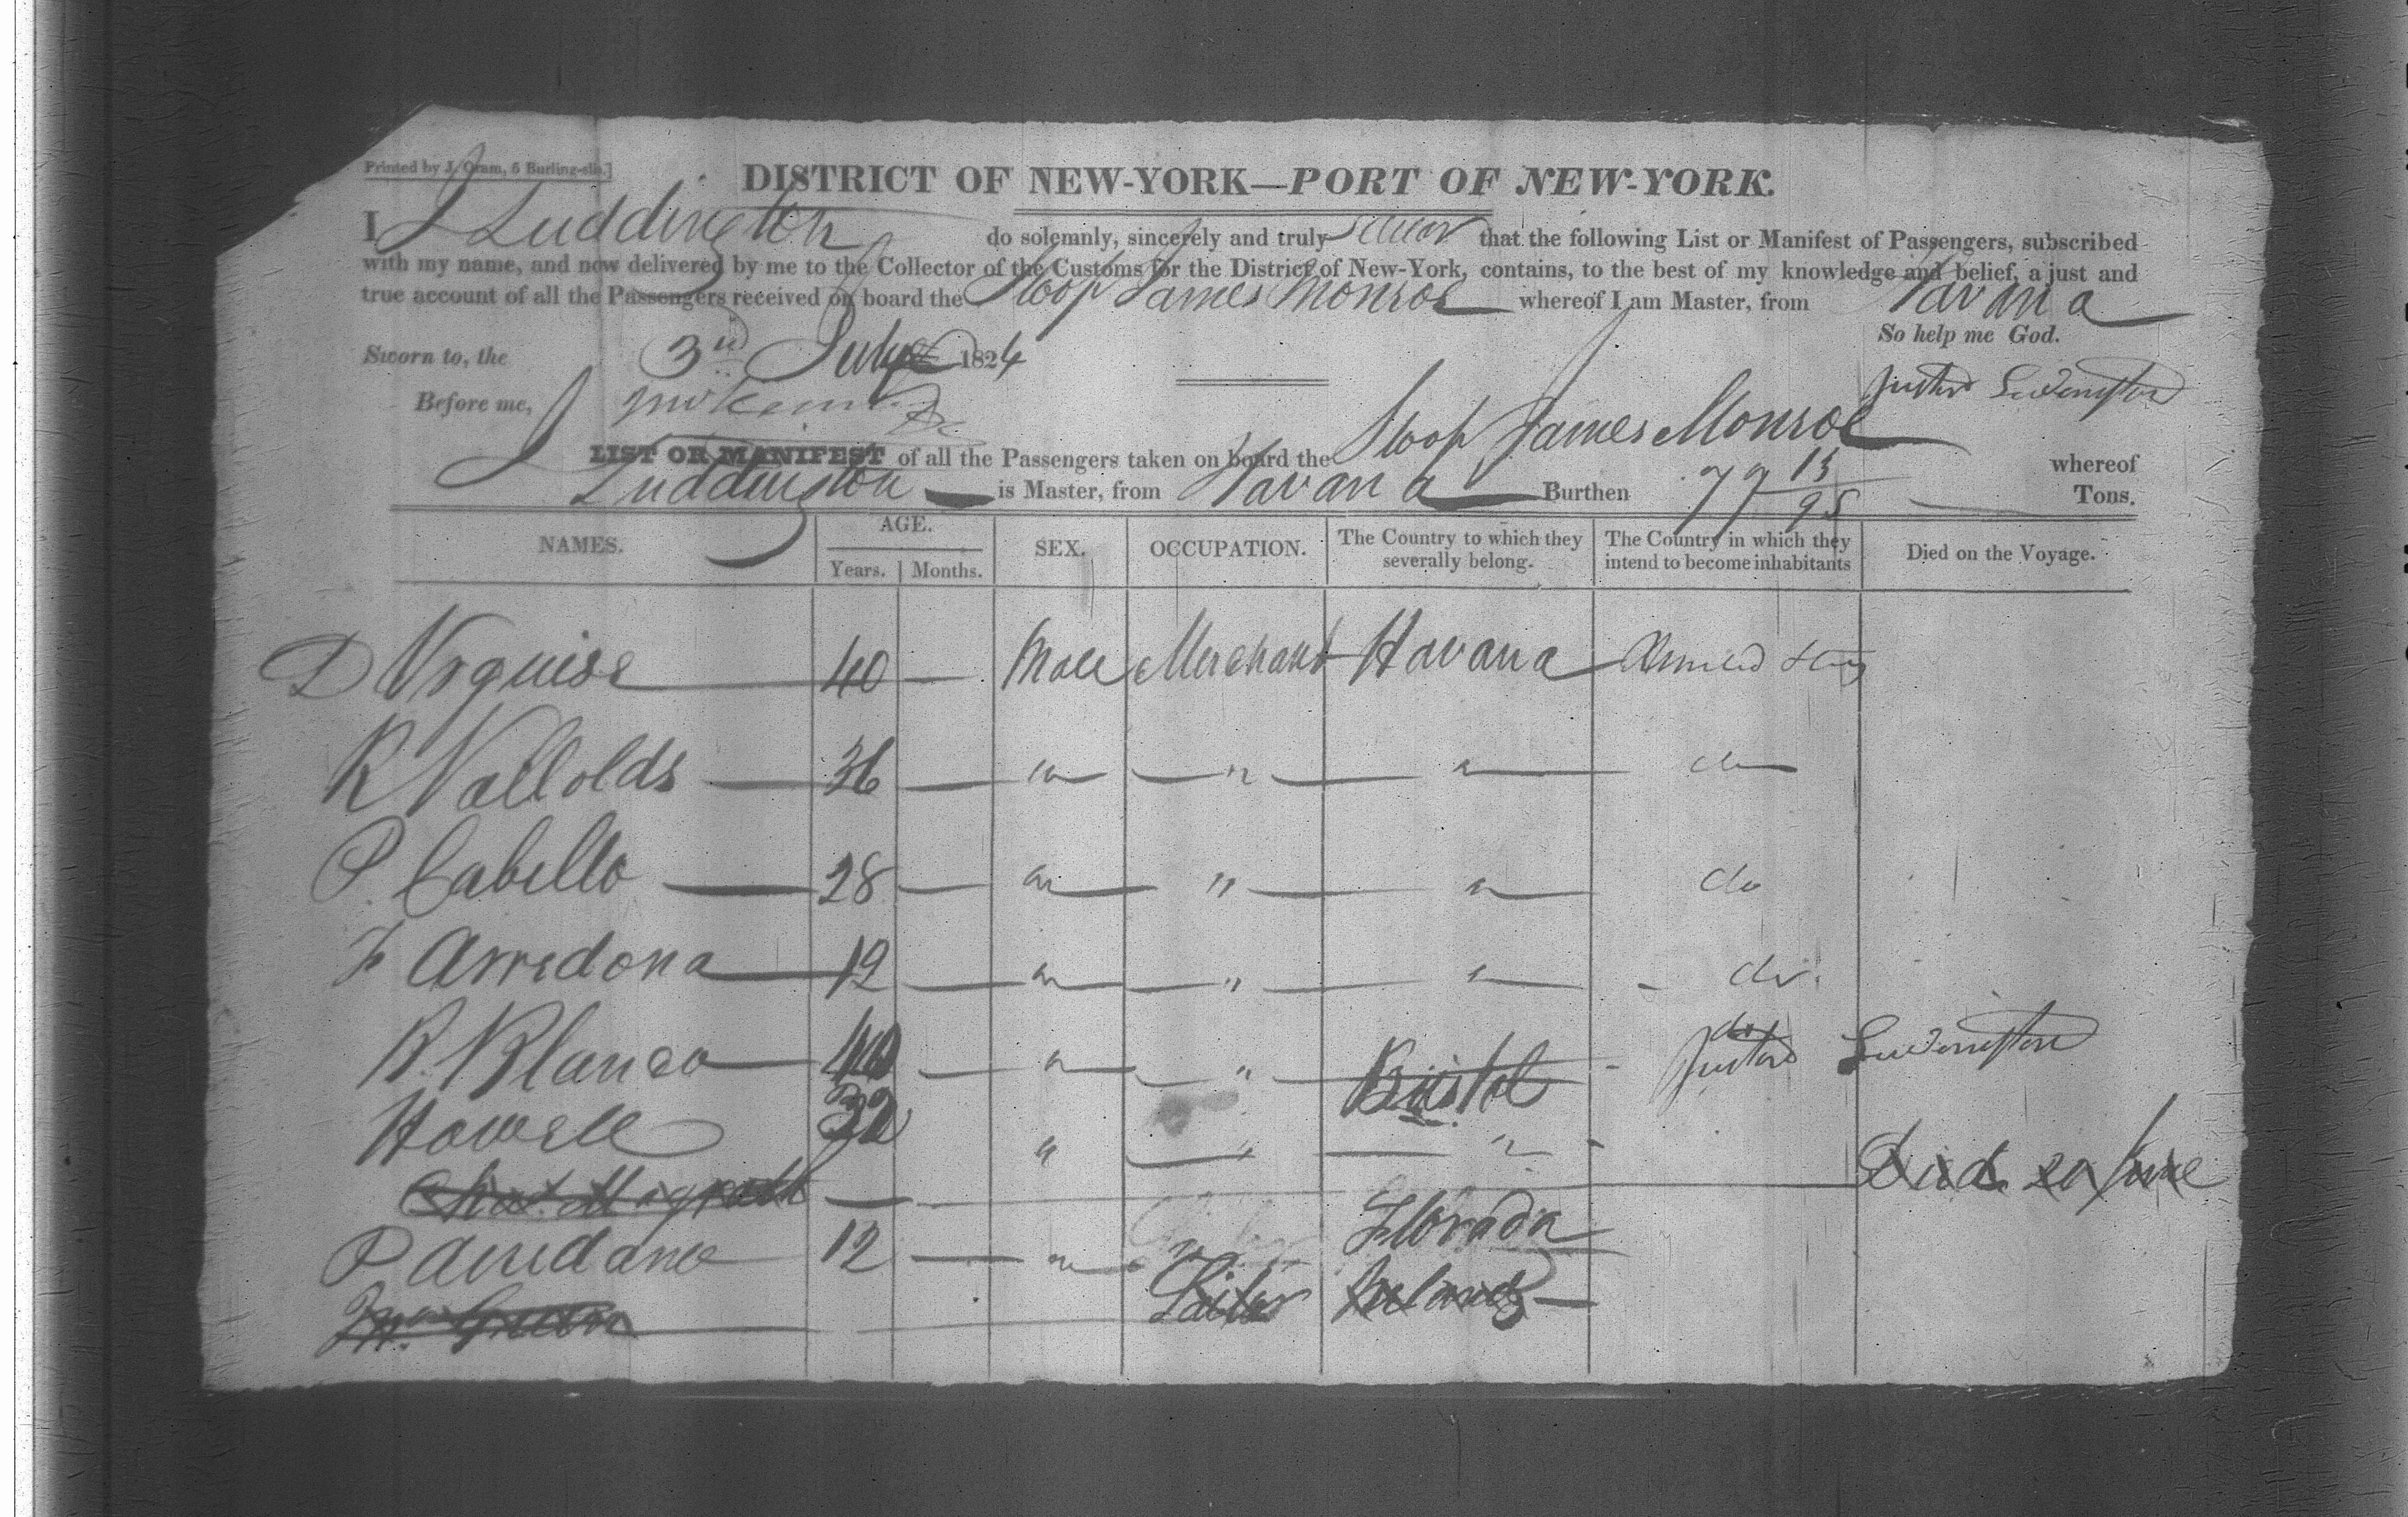 Printed by J. Oram, 5 Burling-slip.]
DISTRICT OF NEW-YORK—PORT OF NEW-YORK.
I, J Luddington do solemnly, sincerely and truly swear that the following List or Manifest of Passengers, subscribed
with my name, and now delivered by me to the Collector of the Customs for the District of New-York, contains, to the best of my knowledge and belief, a just and
true account of all the Passengers received on board the Sloop James Monroe whereof I am Master, from Havana
So help me God.
Sworn to, the 3rd July 1824
Before me,
LIST OR MANIFEST of all the Passengers taken on board the Sloop James Monroe whereof
J Luddington is Master, from Havana Burthen 77 13/95 Tons.
NAMES. AGE. Years. Months. SEX. OCCUPATION. The Country to which they severally belong. The Country in which they intend to become inhabitants Died on the Voyage.
D Urquise 40 — Male Merchant Havana United States
R Vallolds 36 — " " " do
P. Cabello 28 — " " " do
F Arredona 12 — " " " do
R. Blanco 40 — " " do
Howell 32 " " Bristol "
Died 20 June
P Arredano 12 — " " Florada
Ireland